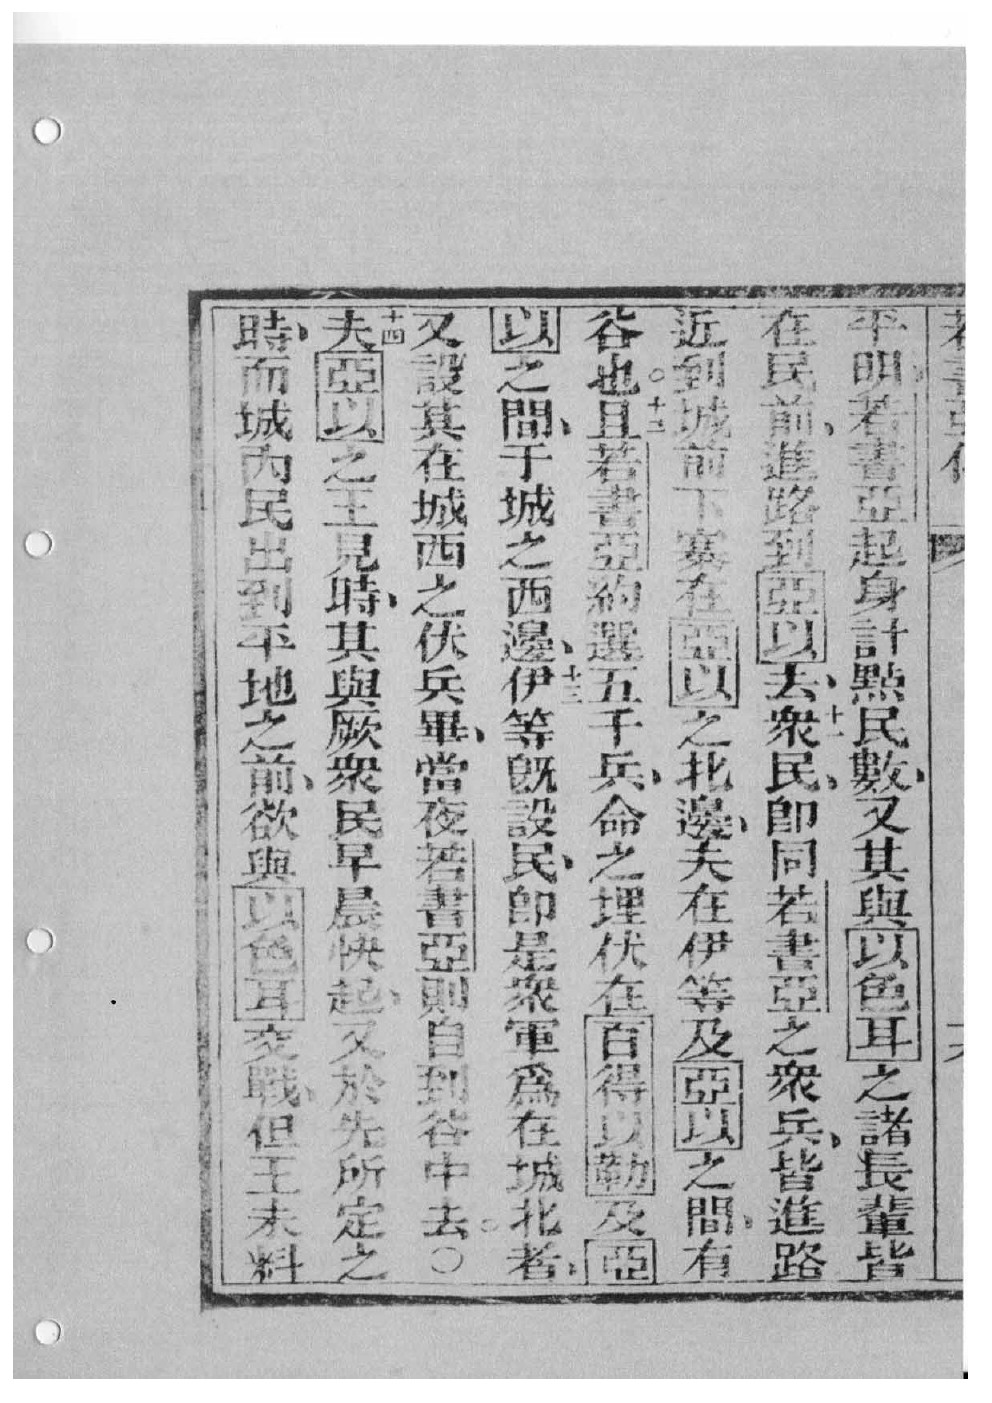 平明若書亞起身計點民數、又其與以色耳之諸長輩皆
在民前、進路到亞以去、十一衆民、卽同若書亞之衆兵、皆進路
近到城前下寨在亞以之北邊、夫在伊等及亞以之間、有
谷也。十二且若書亞約選五千兵、命之埋伏在百得以勒及亞
以之間、于城之西邊、十三伊等旣設民、卽是衆軍爲在城北者、
又設其在城西之伏兵畢、當夜若書亞則自到谷中去。〇
十四夫亞以之王見時、其與厥衆民早晨快起、又於先所定之
時、而城內民出到平地之前、欲與以色耳交戰、但王未料